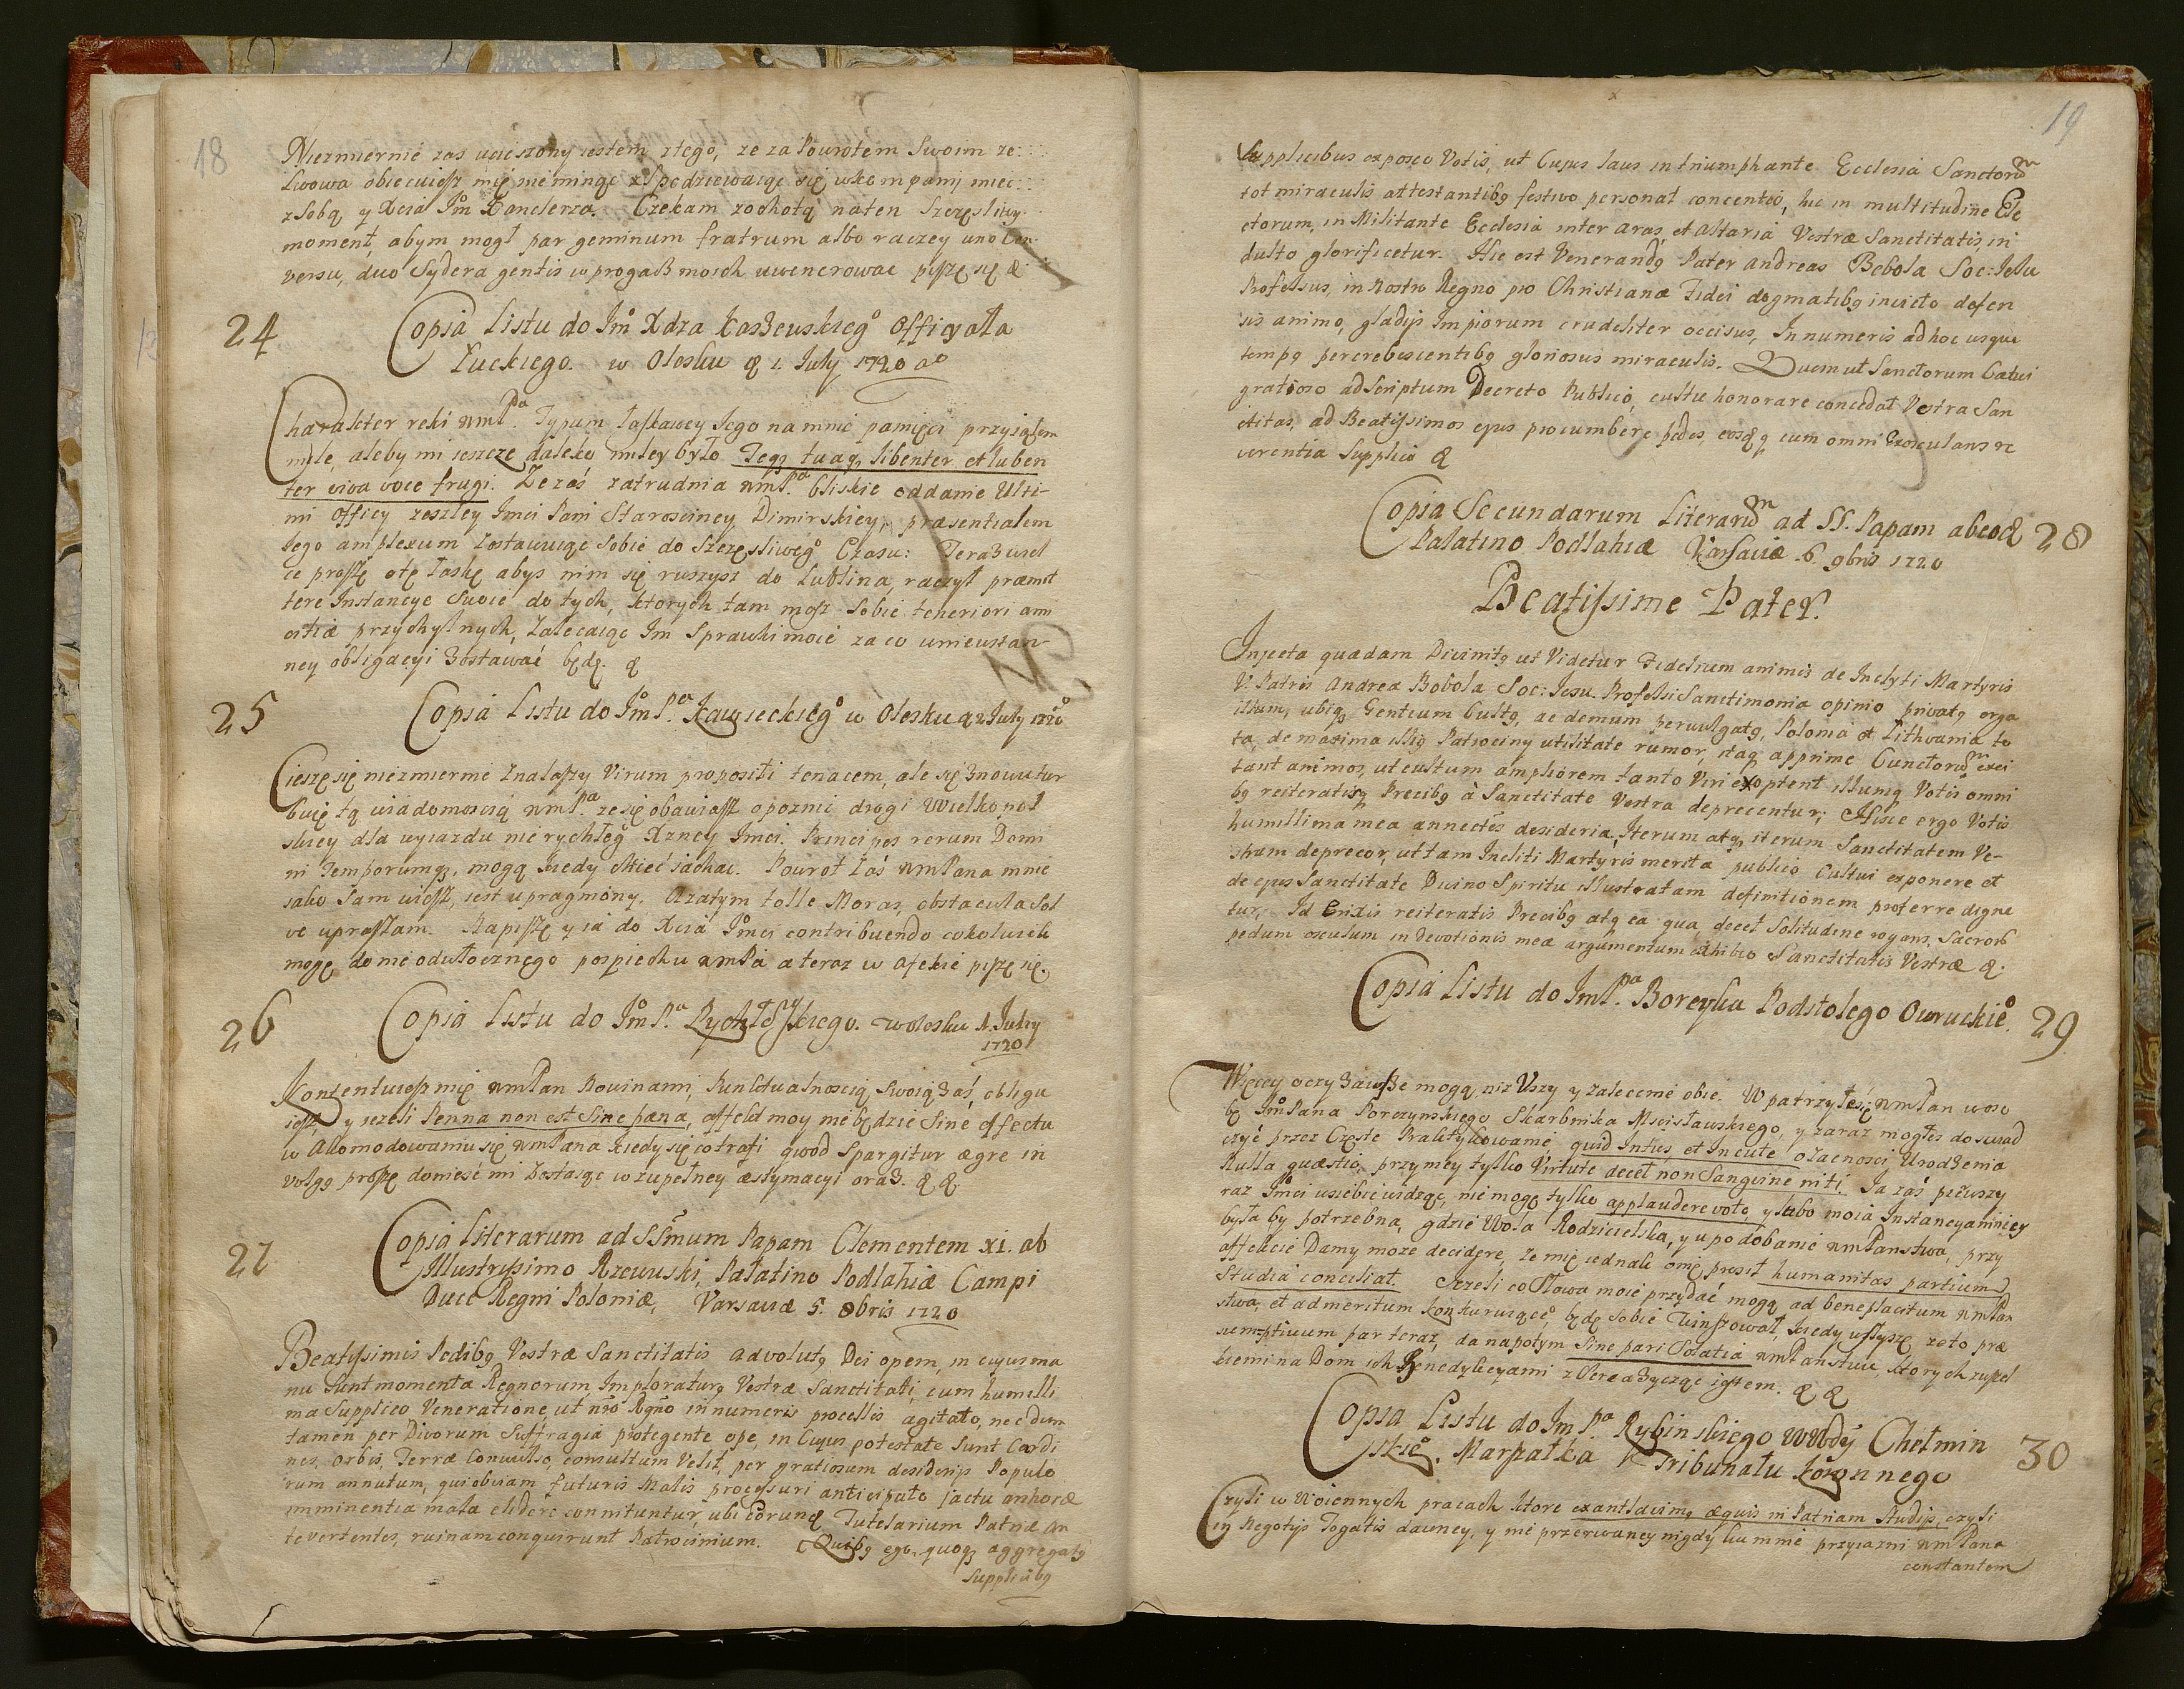 18
Niezmiernie zas ucieszony iestem ztego, ze za Powrotem Swoim ze
Lwowa obiecuiesz mię nieminąc xSpodziewaiąc się wkompanij miec
z Sobą, y Xcia Jm Kanclerza. Czekam zochotą naten Szczęsliwy
moment, abym mogł par geminum fratrum albo raczey uno Con
versu, duo Sydera gentis w progaß moich uwenerowac piszę się &
24
Copia Listu do Jmo Xdza Łaszewskiego Officyała
Łuckiego. w Olesku & 1. July 1720 ao
Charakter reki wmPa. Typum łaskawey Jego namnie pamięci przyiąłem
mile, aleby mi ieszcze daleko miley było Teqz tuaqz libenter et luben
ter viva voce frugi. Ze zaś zatrudnia wmPa. bliskie oddanie Ulti-
mi Officy zeszłey Jmci Pani Starosciney Dimirskiey, præsentialem
Jego amplexum zostawuiąc Sobie do Szczęsliwego Czasu: Teraß wiel
ce proszę otę łaskę abys nim się ruszysz do Lublina, raczył præmit
tere Instancye Swoie do tych, ktorych tam masz Sobie teneriori ami
citiæ przychylnych, Zalecaiąc Im Sprawki moie za co wnieustan-
ney obligacyi Zostawać będę. &
25
Copia Listu do Jmo Pa Ławieckiego w Olesku & 2 July 1720
Cieszę się niezmiernie Znalaszy Virum propositi tenacem, ale się znowutur
buię tą wiadomoscią wmPa ze się obawiasz opoznic drogi Wielkopol
skiey dla wyiazdu nie rychłego Xzney Jmci. Principes rerum Domi
ni Temporumqz, mogą kiedy chcieć iachac. Powrot Zaś wmPana mnie
iako Sam wiesz, iest upragniony. Azatym tolle Moras, obstacula Sol
ve upraszam. Napiszę y ia do Xcia Jmci contribuendo cokolwiek
mogę do nieodwłocznego pospiechu wmPa a teraz w Afekcie piszę się.
26
Copia Listu do Jmo Pa Rychłowskiego. w Olesku 4. July
1720
Kontentuiesz mię wmPan Nowinami, Punktualnoscią Swoią zaś, obligu
iesz y iezeli Penna non est Sine pæna, affekt moy nie będzie Sine effectu
w Akomodowaniu się wmPana kiedy się co trafi quod Spargitur ægre in
volgq proszę doniesć mi Zostaiąc w zupełney æstymacyi oraz. & &
27
Copia literarum ad SSmum Papam Clementem XI. ab
Illustrissimo Rzewuski, Palatino Podlahiæ Campi
Duce Regni Poloniæ, Varsaviæ 5. 8bris 1720
Beatissimis Pedibq Vestræ Sanctitatis advolutq Dei opem, in cujus ma
nu Sunt momenta Regnorum Imploraturq Vestræ Sanctitati, cum humilli
ma Supplico Veneratione, ut nro Rgno innumeris procellis agitato, necdum
tamen per Divorum Suffragia protegente ope, in Cujus potestate Sunt Cardi
nes, Orbis, Terræ Convulso, consultum Velit, per gratiosum desiderijs Populo
rum annutum, qui obviam futuris Malis processuri anticipato jactu anhoræ
imminentia mala elidere connituntur, ubi Eorunq Tutelarium Patriæ An
te vertentes, ruinam conquirunt Patrocinium. Quibq ego, quoqz aggregatq
Supplicibq
19
Supplicibus exposco Votis, ut Cujus laus in triumphante Ecclesia Sanctorum
tot miraculis attestantibq festivo personat concentu, hic in multitudine Ele
ctorum, in Militante Ecclesia inter aras, et altaria Vestræ Sanctitatis, in
dulto glorificetur. Hic est Venerandq Pater Andreas Bobola Soc: Jesu
Professus, in Nostro Regno pro Christianæ Fidei dogmatibq invicto defen
sis animo, gladijs Impiorum crudeliter occisus, Innumeris adhoc usque
tempq percrebescentibq gloriosus miraculis. Quem ut Sanctorum Cætui
gratioso adscriptum Decreto Publico, cultu honorare concedat Vestra San
ctitas, ad Beatissimos ejus procumbere pedes, eosq; cum omni Exosculans re
verentia Supplico &
Copia Secundarum Literarum ad SS. Papam ab eod
Palatino Podlahiæ Varsaviæ 6. 9bris 1720
28
Beatissime Pater.
Injecta quædam Divinitq ut Videtur Fidelium animis de Inclyti Martyris
V. Patris Andreæ Bobola Soc: Jesu. Professi Sanctimonia opinio privatq erga
illum, ubiqz Gentium Cultq, ac demum pervulgatq, Polonia et Lithvania to
ta, de maxima illiq Patrociny utilitate rumor, itaqz apprime Cunctorum exci
tant animos, ut cultum ampliorem tanto Viri exoptent illumq Votis omni
bq reiteratisqz Precibq à Sanctitate Vestra deprecentur; Hisce ergo Votis
humillima mea annectes desideria, Iterum atqz iterum Sanctitatem Ve-
stram deprecor, ut tam Incliti Martyris merita publico Cultui exponere et
de ejus Sanctitate Divino Spiritu illustratam definitionem proferre digne
tur, Id Enixis reiteratis Precibq atqz ea qua decet Solitudine rogans, Sacrorum
pedum osculum in Devotionis meæ argumentum exhibeo Sanctitatis Vestræ &.
Copia Listu do JmPa Boreyka Podstolego Owruckieo.
29
Więcey oczy zawsze mogą niz Uszy y zalecenie obie. Wpatrzyłeś się wmPan w oso
bę JmPana Porczynskiego Skarbnika Mscisławskiego, y zaraz mogłes doswiad
czyć przez Częste Praktykowanie quid Intus et In cute, ozacnosci Urodzenia
Nulla quæstio, przymey tylko Virtute decet non Sanguine niti. Ja zaś pierwszy
raz Jmci usiebie widząc, nie mogę tylko applaudere voto, y lubo moia Instancya mniey
była by potrzebna, gdzie Wola Rodzicielska, y upodobanie wmPanstwa, przy
affekcie Damy moze decidere, ze mię iednak onię prosił humanitas partium
Studia conciliat. Iezeli co Słowa moie przydać mogą ad beneplacitum wmPan
stwa, et ad meritum konkuruiąceo, będę Sobie winszował, kiedy usłyszę zeto præ
sumptivum par teraz, da napotym Sine pari Solatia wmPanstwu, ktorych zupeł
kiemi na Dom ich Benedykcyami z Serca Zycząc iestem. & &
Copia Listu do JmPa Rybinskiego Wwody Chełmin
skieo. Marszałka Tribunału Koronnego
30
Czyli w Woiennych pracach ktore exantlavimq æquis in Patriam Studijs, czyli
in Negotijs Togatis dawney, y nie przerwaney nigdy ku mnie przyiazni wmPana
constantem